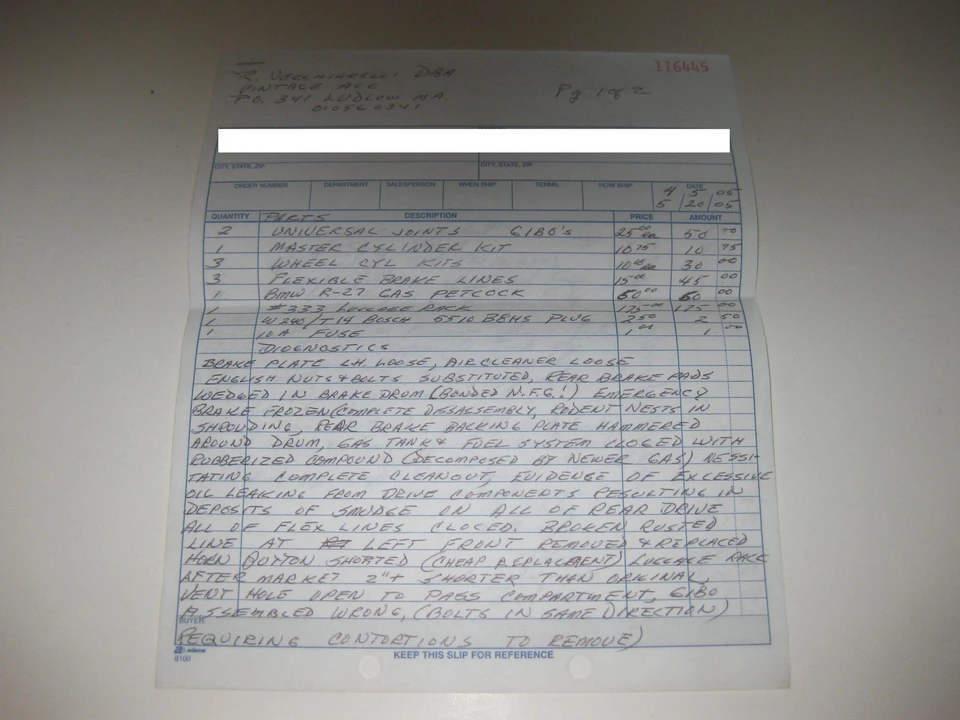 116445
R. VECCHIARELLI DBA
VINTAGE ACC
P.O. 341 LUDLOW MA.
01056 0341
Pg 1 of 2
CITY, STATE, ZIP CITY, STATE, ZIP
ORDER NUMBER DEPARTMENT SALESPERSON WHEN SHIP TERMS HOW SHIP DATE
4 5 05
5 20 05
QUANTITY PARTS DESCRIPTION PRICE AMOUNT
2 UNIVERSAL JOINTS GIBO'S 25.00 ea 50 00
1 MASTER CYLINDER KIT 10 75 10 75
3 WHEEL CYL KITS 10 00 ea 30 00
3 FLEXIBLE BRAKE LINES 15 00 45 00
1 BMW R-27 GAS PETCOCK 60 00 60 00
1 #333 LUGGAGE RACK 175 00 175 00
1 W240/T14 BOSCH 5510 BBHS PLUG 2 50 2 50
1 10A FUSE 1 00 1 00
DIAGNOSTICS
BRAKE PLATE L.H. LOOSE, AIRCLEANER LOOSE
ENGLISH NUTS & BOLTS SUBSTITUTED, REAR BRAKE PADS
WEDGED IN BRAKE DRUM (BONDED N.F.G.!) EMERGENCY
BRAKE FROZEN (COMPLETE DISASSEMBLY, RODENT NESTS IN
SHROUDING, REAR BRAKE BACKING PLATE HAMMERED
AROUND DRUM, GAS TANK & FUEL SYSTEM CLOGED WITH
RUBBERIZED COMPOUND (DECOMPOSED BY NEWER GAS) NESSI-
TATING COMPLETE CLEANOUT, EVIDENCE OF EXCESSIVE
OIL LEAKING FROM DRIVE COMPONENTS RESULTING IN
DEPOSITS OF SMUDGE ON ALL OF REAR DRIVE
ALL OF FLEX LINES CLOGED. BROKEN RUSTED
LINE AT LEFT FRONT REMOVED & REPLACED
HORN BUTTON SHORTED (CHEAP REPLACEMENT) LUGGAGE RACK
AFTER MARKET 2"+ SHORTER THAN ORIGINAL,
VENT HOLE OPEN TO PASS COMPARTMENT, GIBO
ASSEMBLED WRONG, (BOLTS IN SAME DIRECTION)
BUYER
REQUIRING CONTORTIONS TO REMOVE)
adams
8100
KEEP THIS SLIP FOR REFERENCE